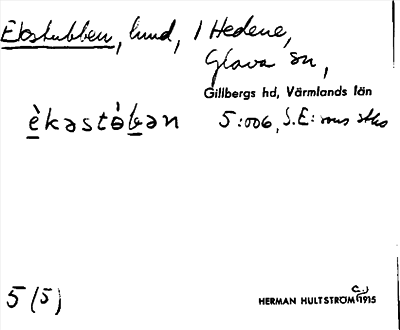 Ekstubben, lund, 1 Hedene,
Glava sn,
Gillbergs hd, Värmlands län
èkəstòbən 5:006, S.E:
5 (5)
HERMAN HULTSTRÖM 1915